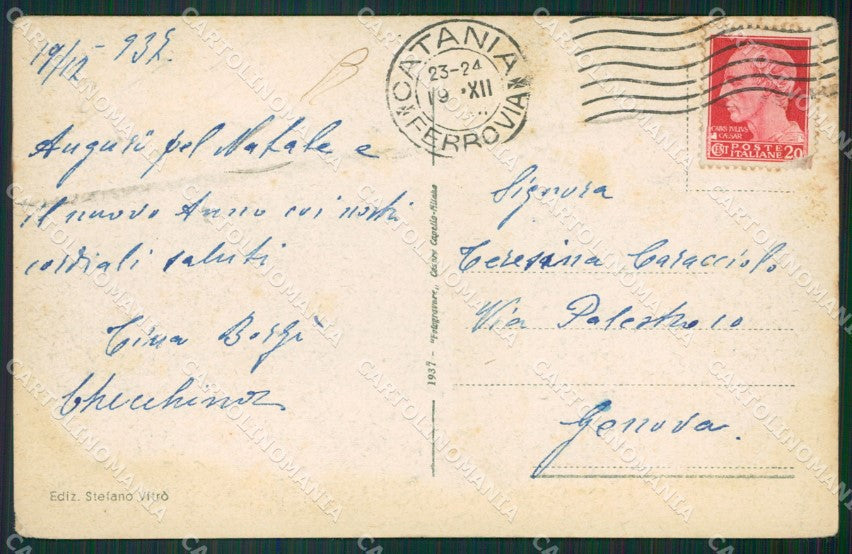 19/12 - 937.
Auguri pel Natale e
il nuovo Anno coi nostri
cordiali saluti
Tina Borgi
Checchino
Ediz. Stefano Vitrò
1937 - "Fotogravure„ Cesare Capello-Milano
CATANIA
23-24
19 XII
FERROVIA
CAIUS IVLIVS
CAESAR
CENT POSTE
ITALIANE 20
Signora
Teresina Caracciolo
Via Palestro 10
Genova.
CARTOLINOMANIA